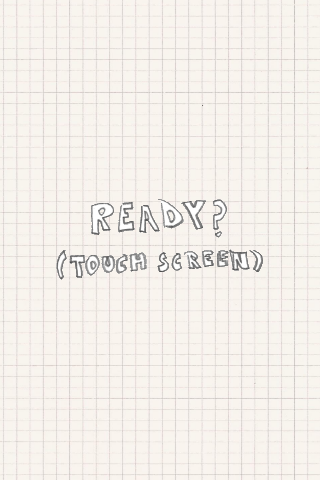 READY?
(TOUCH SCREEN)